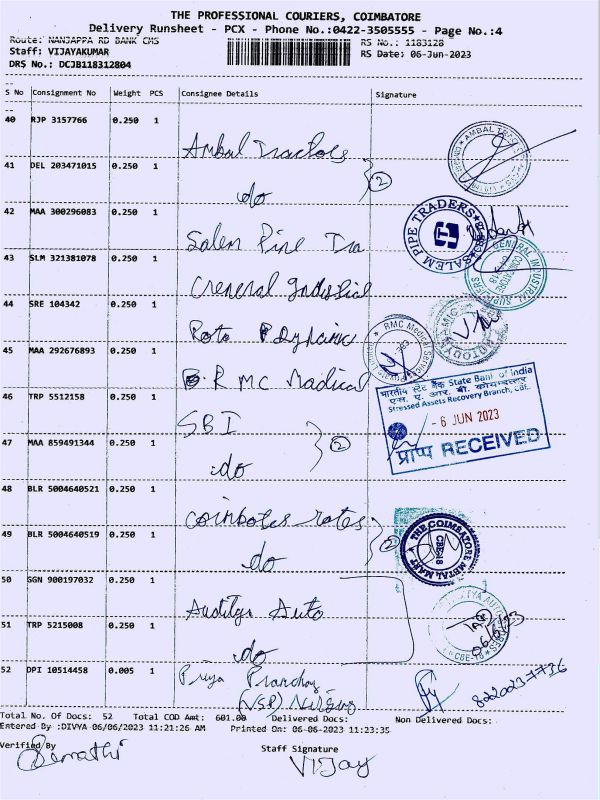 THE PROFESSIONAL COURIERS, COIMBATORE
Delivery Runsheet - PCX - Phone No.:0422-3505555 - Page No.:4
Route: NANJAPPA RD BANK CMS RS No.: 1183128
Staff: VIJAYAKUMAR RS Date: 06-Jun-2023
DRS No.: DCJB118312804
S No Consignment No Weight PCS Consignee Details Signature
40 RJP 3157766 0.250 1 Ambal Tractors
41 DEL 203471015 0.250 1 do 2
42 MAA 300296083 0.250 1 Salem Pipe Tra
SALEM PIPE TRADERS
43 SLM 321381078 0.250 1 General Industrial
GENERAL INDUSTRIAL
44 SRE 104342 0.250 1 Roto Dynamic
45 MAA 292676893 0.250 1 RMC Medical
RMC Medical Service Private Limited
46 TRP 5512158 0.250 1 SBI
भारतीय स्टेट बैंक State Bank of India
Stressed Assets Recovery Branch, CBE.
- 6 JUN 2023
RECEIVED
47 MAA 859491344 0.250 1 do 2
48 BLR 5004640521 0.250 1
49 BLR 5004640519 0.250 1 do 2
THE COIMBATORE METAL MART
CBE-18
50 GGN 900197032 0.250 1 Auto
51 TRP 5215008 0.250 1 do
06/6/23
CBE-18
52 DPI 10514458 0.005 1 Priya
8220237736
Total No. Of Docs: 52 Total COD Amt: 601.00 Delivered Docs: Non Delivered Docs:
Entered By :DIVYA-06/06/2023 11:21:26 AM Printed On: 06-06-2023 11:23:35
Verified By Staff Signature
Vijay